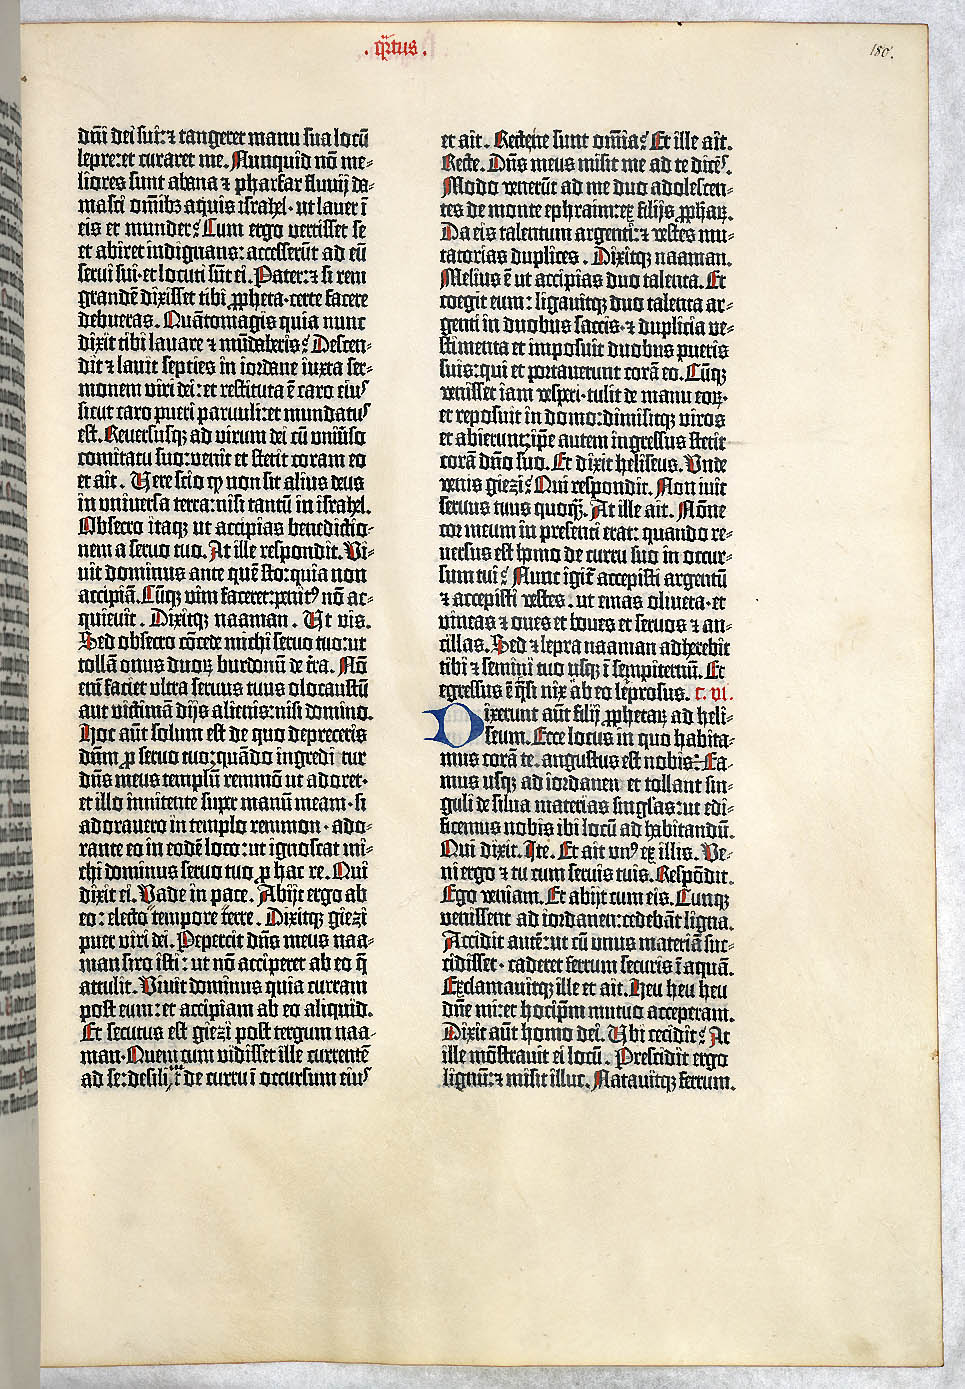 . qrtus .
180.
dñi dei sui: ⁊ tangeret manu sua locū
lepre: et curaret me. Nunquid nō me-
liores sunt abana ⁊ pharfar fluvij da-
masci omībꝫ aquis israhel · ut laver ī
eis et munder? Cum ergo vertisset se
et abiret indignans: accesserūt ad eū
servi sui · et locuti sūt ei. Pater: ⁊ si rem
grandē dixisset tibi ꝓpheta · certe facere
debueras. Quātomagis quia nunc
dixit tibi lavare ⁊ mūdaberis? Descen-
dit ⁊ lavit septies in iordane iuxta ser-
monem viri dei: et restituta ē caro eiuꝰ
sicut caro pueri parvuli: et mundatuꝰ
est. Reversusqꝫ ad virum dei cū univ̄so
comitatu suo: venit et stetit coram eo
et ait. Vere scio ꝙ non sit alius deus
in universa terra: nisi tantū in israhel.
Obsecro itaqꝫ ut accipias benedictio-
nem a servo tuo. At ille respondit. Vi-
vit dominus ante quē sto: quia non
accipiā. Cūqꝫ vim faceret: penitꝰ nō ac-
quievit . Dixitqꝫ naaman . Ut vis.
Sed obsecro cōcede michi servo tuo: ut
tollā onus duoꝝ burdonū de t̄ra. Nō
eni faciet ultra servus tuus olocaustū
aut victimā dijs alienis: nisi domino.
Hoc aūt solum est de quo depreceris
dñm ꝓ servo tuo: quādo ingredit̄ur
dñs meus templū remmon ut adoret ·
et illo innitente super manū meam · si
adoravero in templo remmon · ado-
rante eo in eodē loco: ut ignoscat mi-
chi dominus servo tuo ꝓ hac re. Qui
dixit ei. Vade in pace . Abijt ergo ab
eo: electo tempore terre . Dixitqꝫ giezi
puer viri dei. Pepercit dñs meus naa-
man siro isti: ut nō acciperet ab eo q̄
attulit. Vivit dominus quia curram
post eum: et accipiam ab eo aliquid.
Et secutus est giezi post tergum naa-
man · Quem cum vidisset ille currentē
ad se: desilijt de curru ī occursum eiuꝰ
et ait. Recte ne sunt omīa? Et ille ait.
Recte. Dñs meus misit me ad te dicēs.
Modo venerūt ad me duo adolescen-
tes de monte ephraim: ex filijs ꝓphaꝝ.
Da eis talentum argenti: ⁊ vestes mu-
tatorias duplices . Dixitqꝫ naaman.
Melius ē ut accipias duo talenta. Et
coegit eum: ligavitqꝫ duo talenta ar-
genti in duobus saccis · ⁊ duplicia ve-
stimenta et imposuit duobus pueris
suis: qui et portaverunt corā eo. Cūqꝫ
venisset iam vesperi · tulit de manu eoꝝ ·
et reposuit in domo: dimisitqꝫ viros
et abierunt: ip̄e autem ingressus stetit
corā dño suo. Et dixit heliseus. Unde
venis giezi? Qui respondit. Non ivit
servus tuus quoq̄ꝫ. At ille ait. Nōne
cor meum in presenti erat: quando re-
versus est homo de curru suo in occur-
sum tui? Nunc igit̄ accepisti argentū
⁊ accepisti vestes . ut emas oliveta · et
vineas ⁊ oves et boves et servos ⁊ an-
cillas. Sed ⁊ lepra naaman adherebit
tibi ⁊ semini tuo usqꝫ ī sempiternū. Et
egressus ē q̄si nix ab eo leprosus. c. vi.
Dixerunt aūt filij ꝓphetaꝝ ad heli-
seum. Ecce locus in quo habita-
mus corā te · angustus est nobis: Ea-
mus usqꝫ ad iordanen et tollant sin-
guli de silva materias singl̄as: ut edi-
ficemus nobis ibi locū ad habitandū.
Qui dixit. Ite. Et ait unꝰ ex illis. Ve-
ni ergo ⁊ tu cum servis tuis. Respōdit.
Ego veniam. Et abijt cum eis. Cunqꝫ
venissent ad iordanen: cedebāt ligna.
Accidit autē: ut cū unus materiā suc-
cidisset · caderet ferrum securis ī aquā.
Exclamavitqꝫ ille et ait. Heu heu heu
dñe mi: et hocip̄m mutuo acceperam.
Dixit aūt homo dei. Ubi cecidit? At
ille mōstravit ei locū . Prescidit ergo
lignū: ⁊ misit illuc. Natavitqꝫ ferrum.